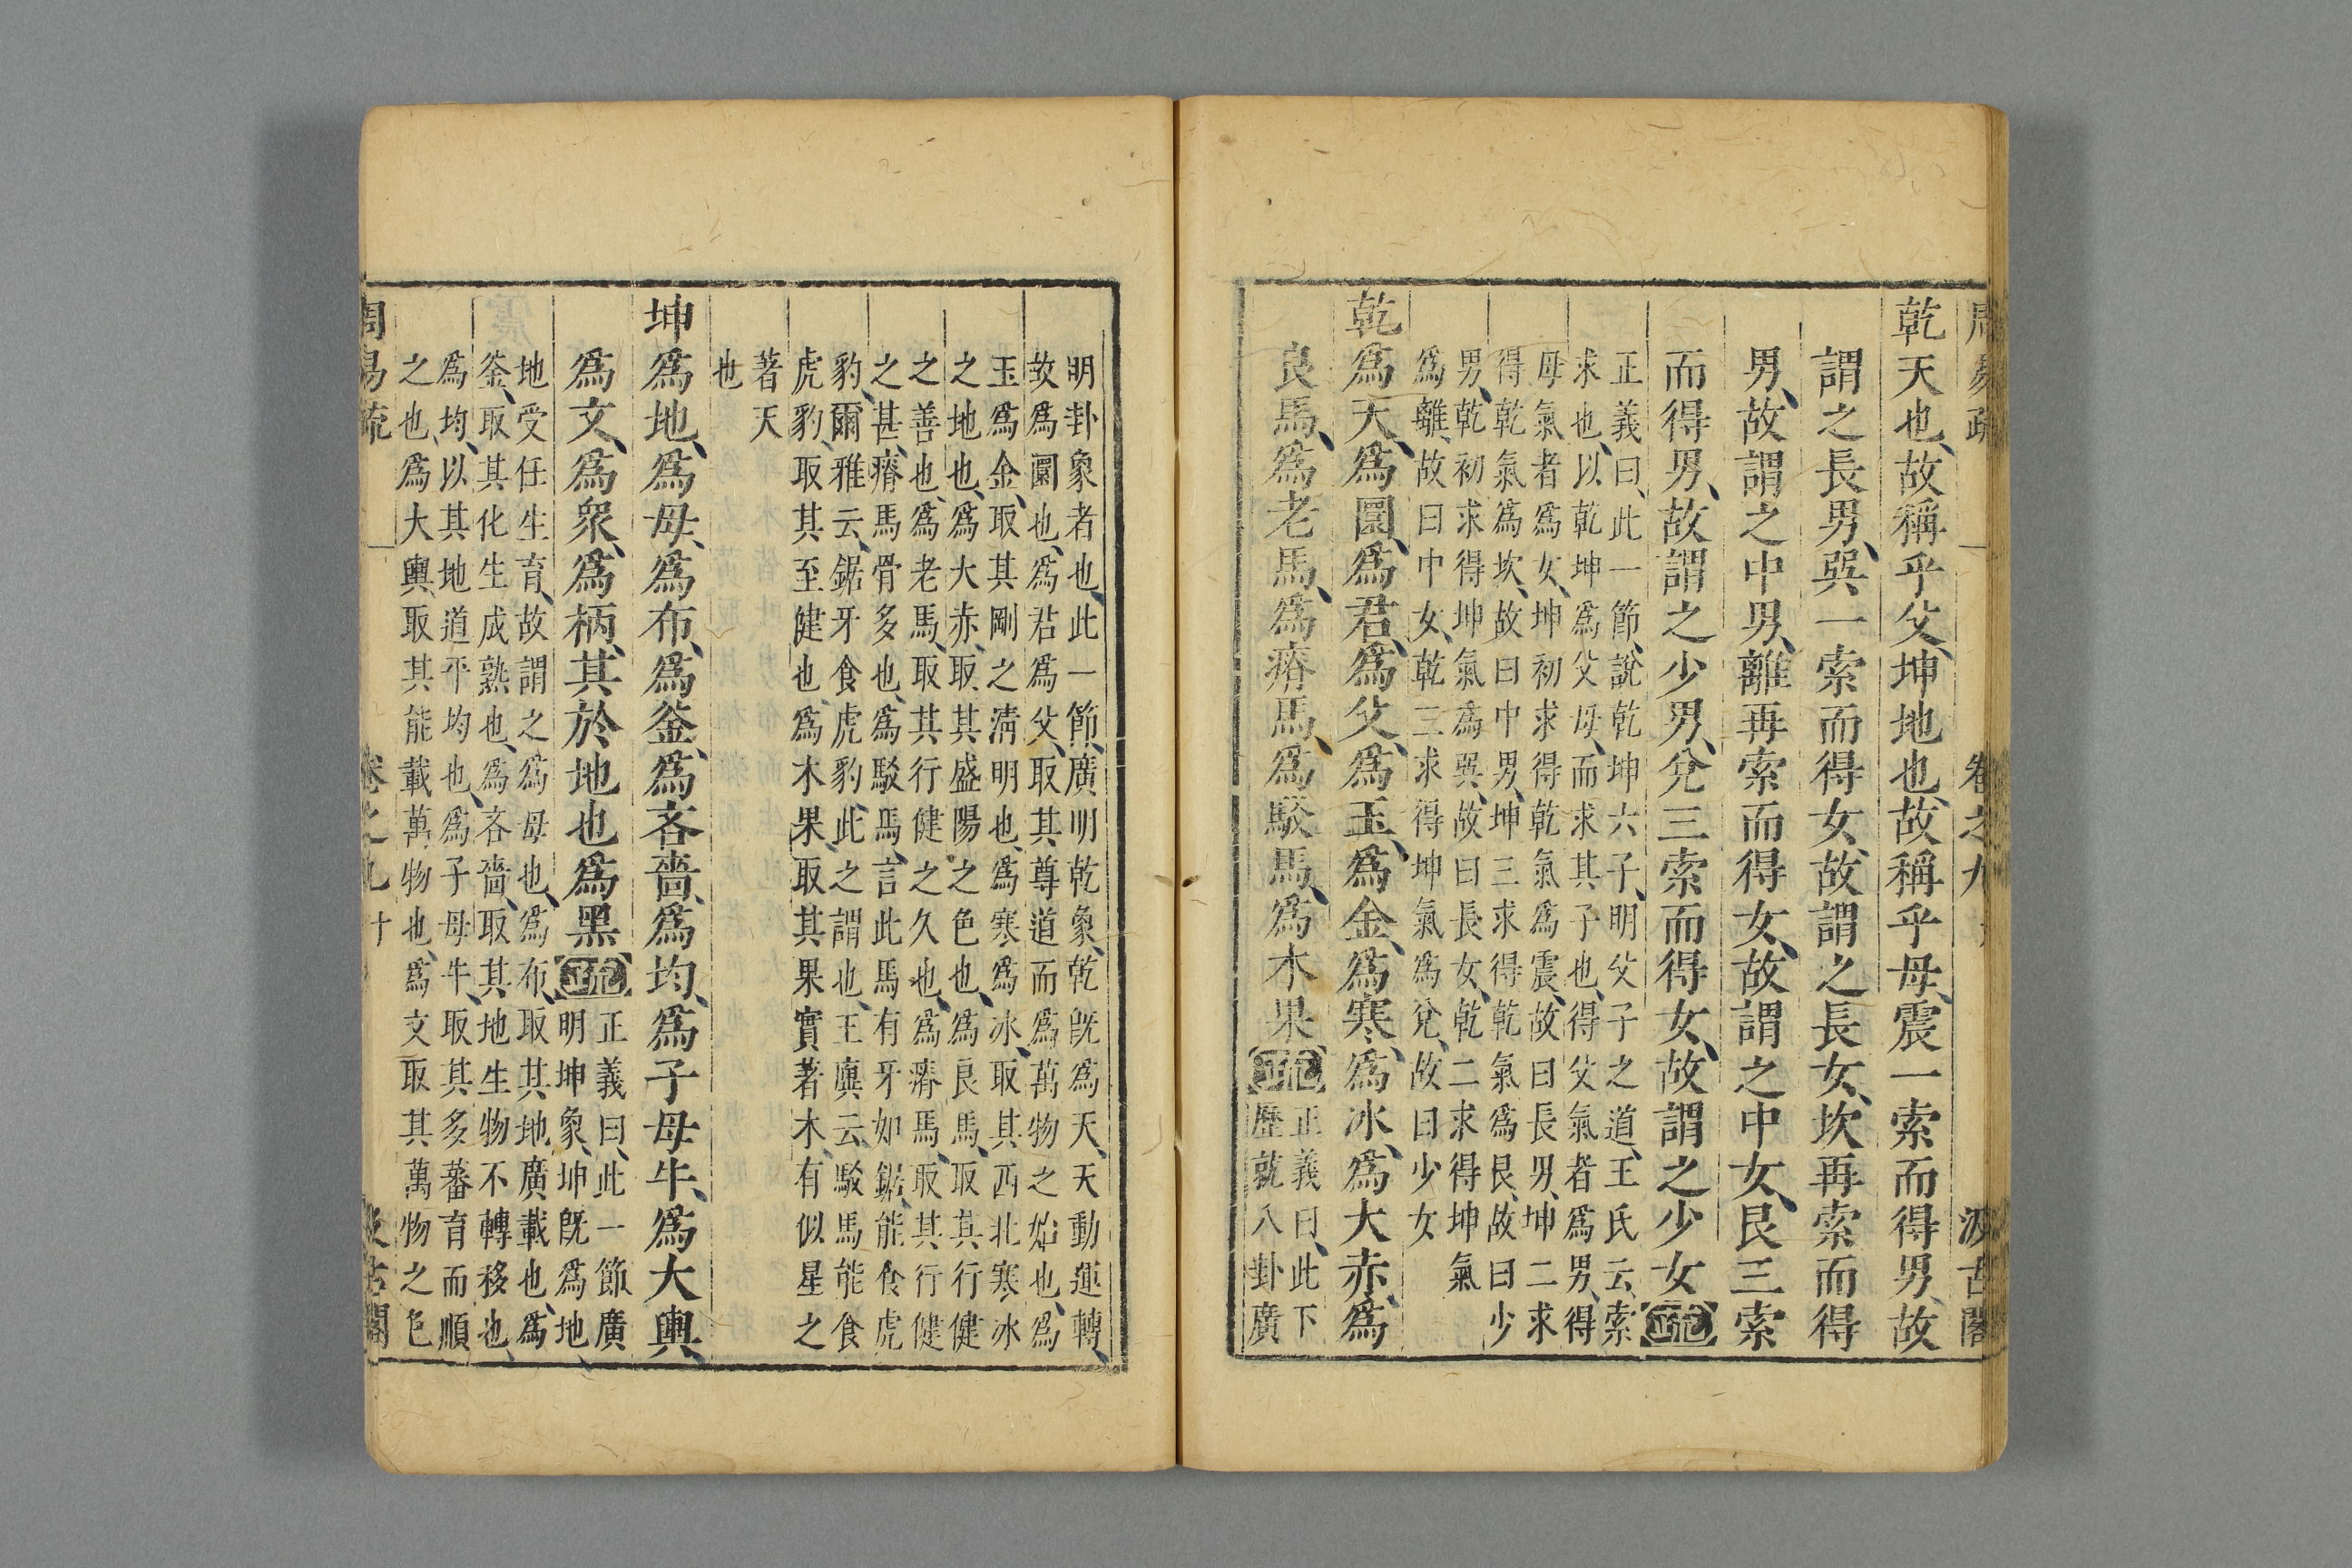 周易疏 卷之九 汲古閣
乾天也故稱乎父坤地也故稱乎母震一索而得男故
謂之長男巽一索而得女故謂之長女坎再索而得
男故謂之中男離再索而得女故謂之中女艮三索
而得男故謂之少男兌三索而得女故謂之少女疏
正義曰此一節說乾坤六子明父子之道王氏云索
求也以乾坤為父母而求其子也得父氣者為男得
母氣者為女坤初求得乾氣為震故曰長男坤二求
得乾氣為坎故曰中男坤三求得乾氣為艮故曰少
男乾初求得坤氣為巽故曰長女乾二求得坤氣
為離故曰中女乾三求得坤氣為兌故曰少女
乾為天為圜為君為父為玉為金為寒為冰為大赤為
良馬為老馬為瘠馬為駁馬為木果疏
正義曰此下
歷就八卦廣
明卦象者也此一節廣明乾象乾既為天天動運轉
故為圜也為君為父取其尊道而為萬物之始也為
玉為金取其剛之清明也為寒為冰取其西北寒冰
之地也為大赤取其盛陽之色也為良馬取其行健
之善也為老馬取其行健之久也為瘠馬取其行健
之甚瘠馬骨多也為駁馬言此馬有牙如鋸能食虎
豹爾雅云鋸牙食虎豹此之謂也王廙云駁馬能食
虎豹取其至健也為木果取其果實著木有似星之
著天
也
坤為地為母為布為釜為吝嗇為均為子母牛為大輿
為文為衆為柄其於地也為黑疏
正義曰此一節廣
明坤象坤既為地
地受任生育故謂之為母也為布取其地廣載也為
釜取其化生成熟也為吝嗇取其地生物不轉移也
為均以其地道平均也為子母牛取其多蕃育而順
之也為大輿取其能載萬物也為文取其萬物之色
周易疏 卷之九 十 汲古閣